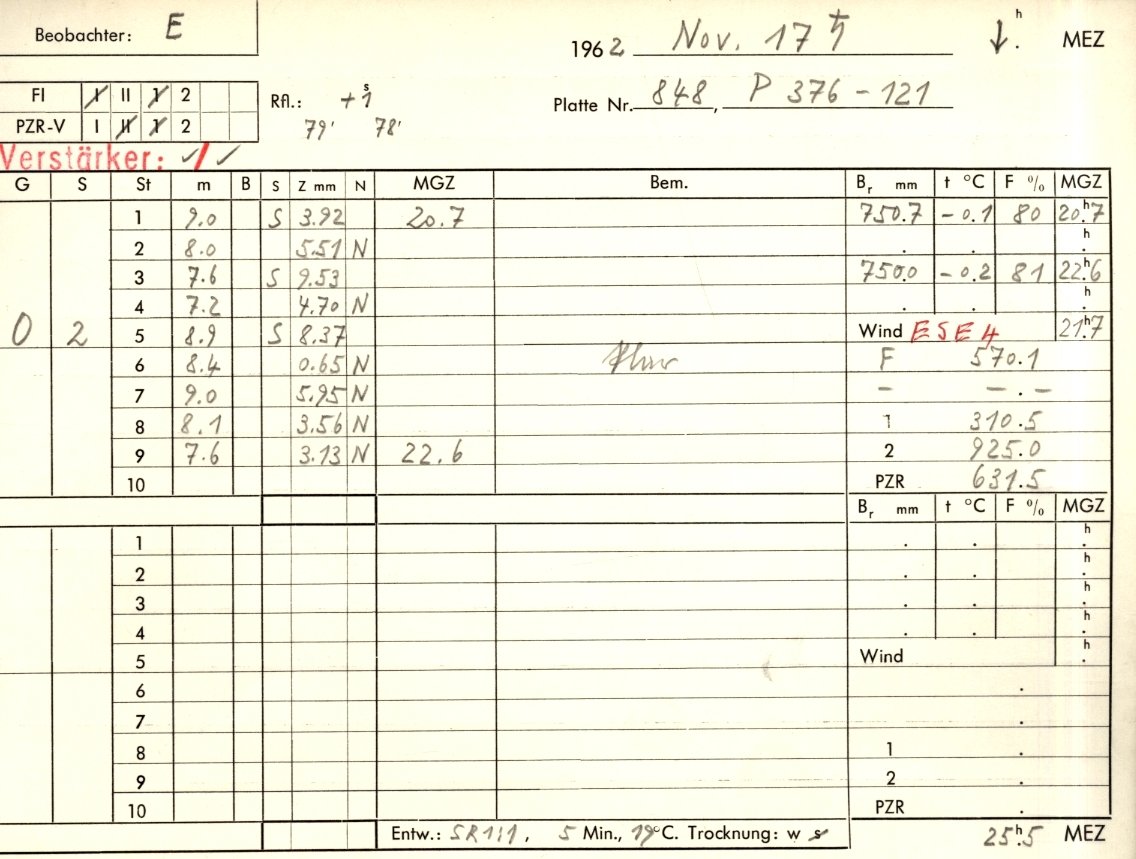 Beobachter: E
1962 Nov. 17 ♄ ↓ h . MEZ
FI I II 1 2
PZR-V I II 1 2
Rfl.: +1 s
79' 78'
Platte Nr. 848, P 376 – 121
Verstärker: ✓/✓
G S St m B S Z mm N MGZ Bem. Br mm t °C F % MGZ
1 9.0 S 3.92 20.7 750.7 -0.1 80 20h.7
2 8.0 5.51 N . . h.
3 7.6 S 9.53 750.0 -0.2 81 22h.6
4 7.2 4.70 N . . h.
0 2 5 8.9 S 8.37 Wind ESE 4 21h.7
6 8.4 0.65 N F 570.1
7 9.0 5.95 N – –.–
8 8.1 3.56 N 1 310.5
9 7.6 3.13 N 22.6 2 925.0
10 PZR 631.5
Br mm t °C F % MGZ
1 . . h.
2 . . h.
3 . . h.
4 . . h.
5 Wind h.
6 .
7 .
8 1 .
9 2 .
10 PZR .
Entw.: SR 1:1, 5 Min., 19°C. Trocknung: w s 25h.5 MEZ